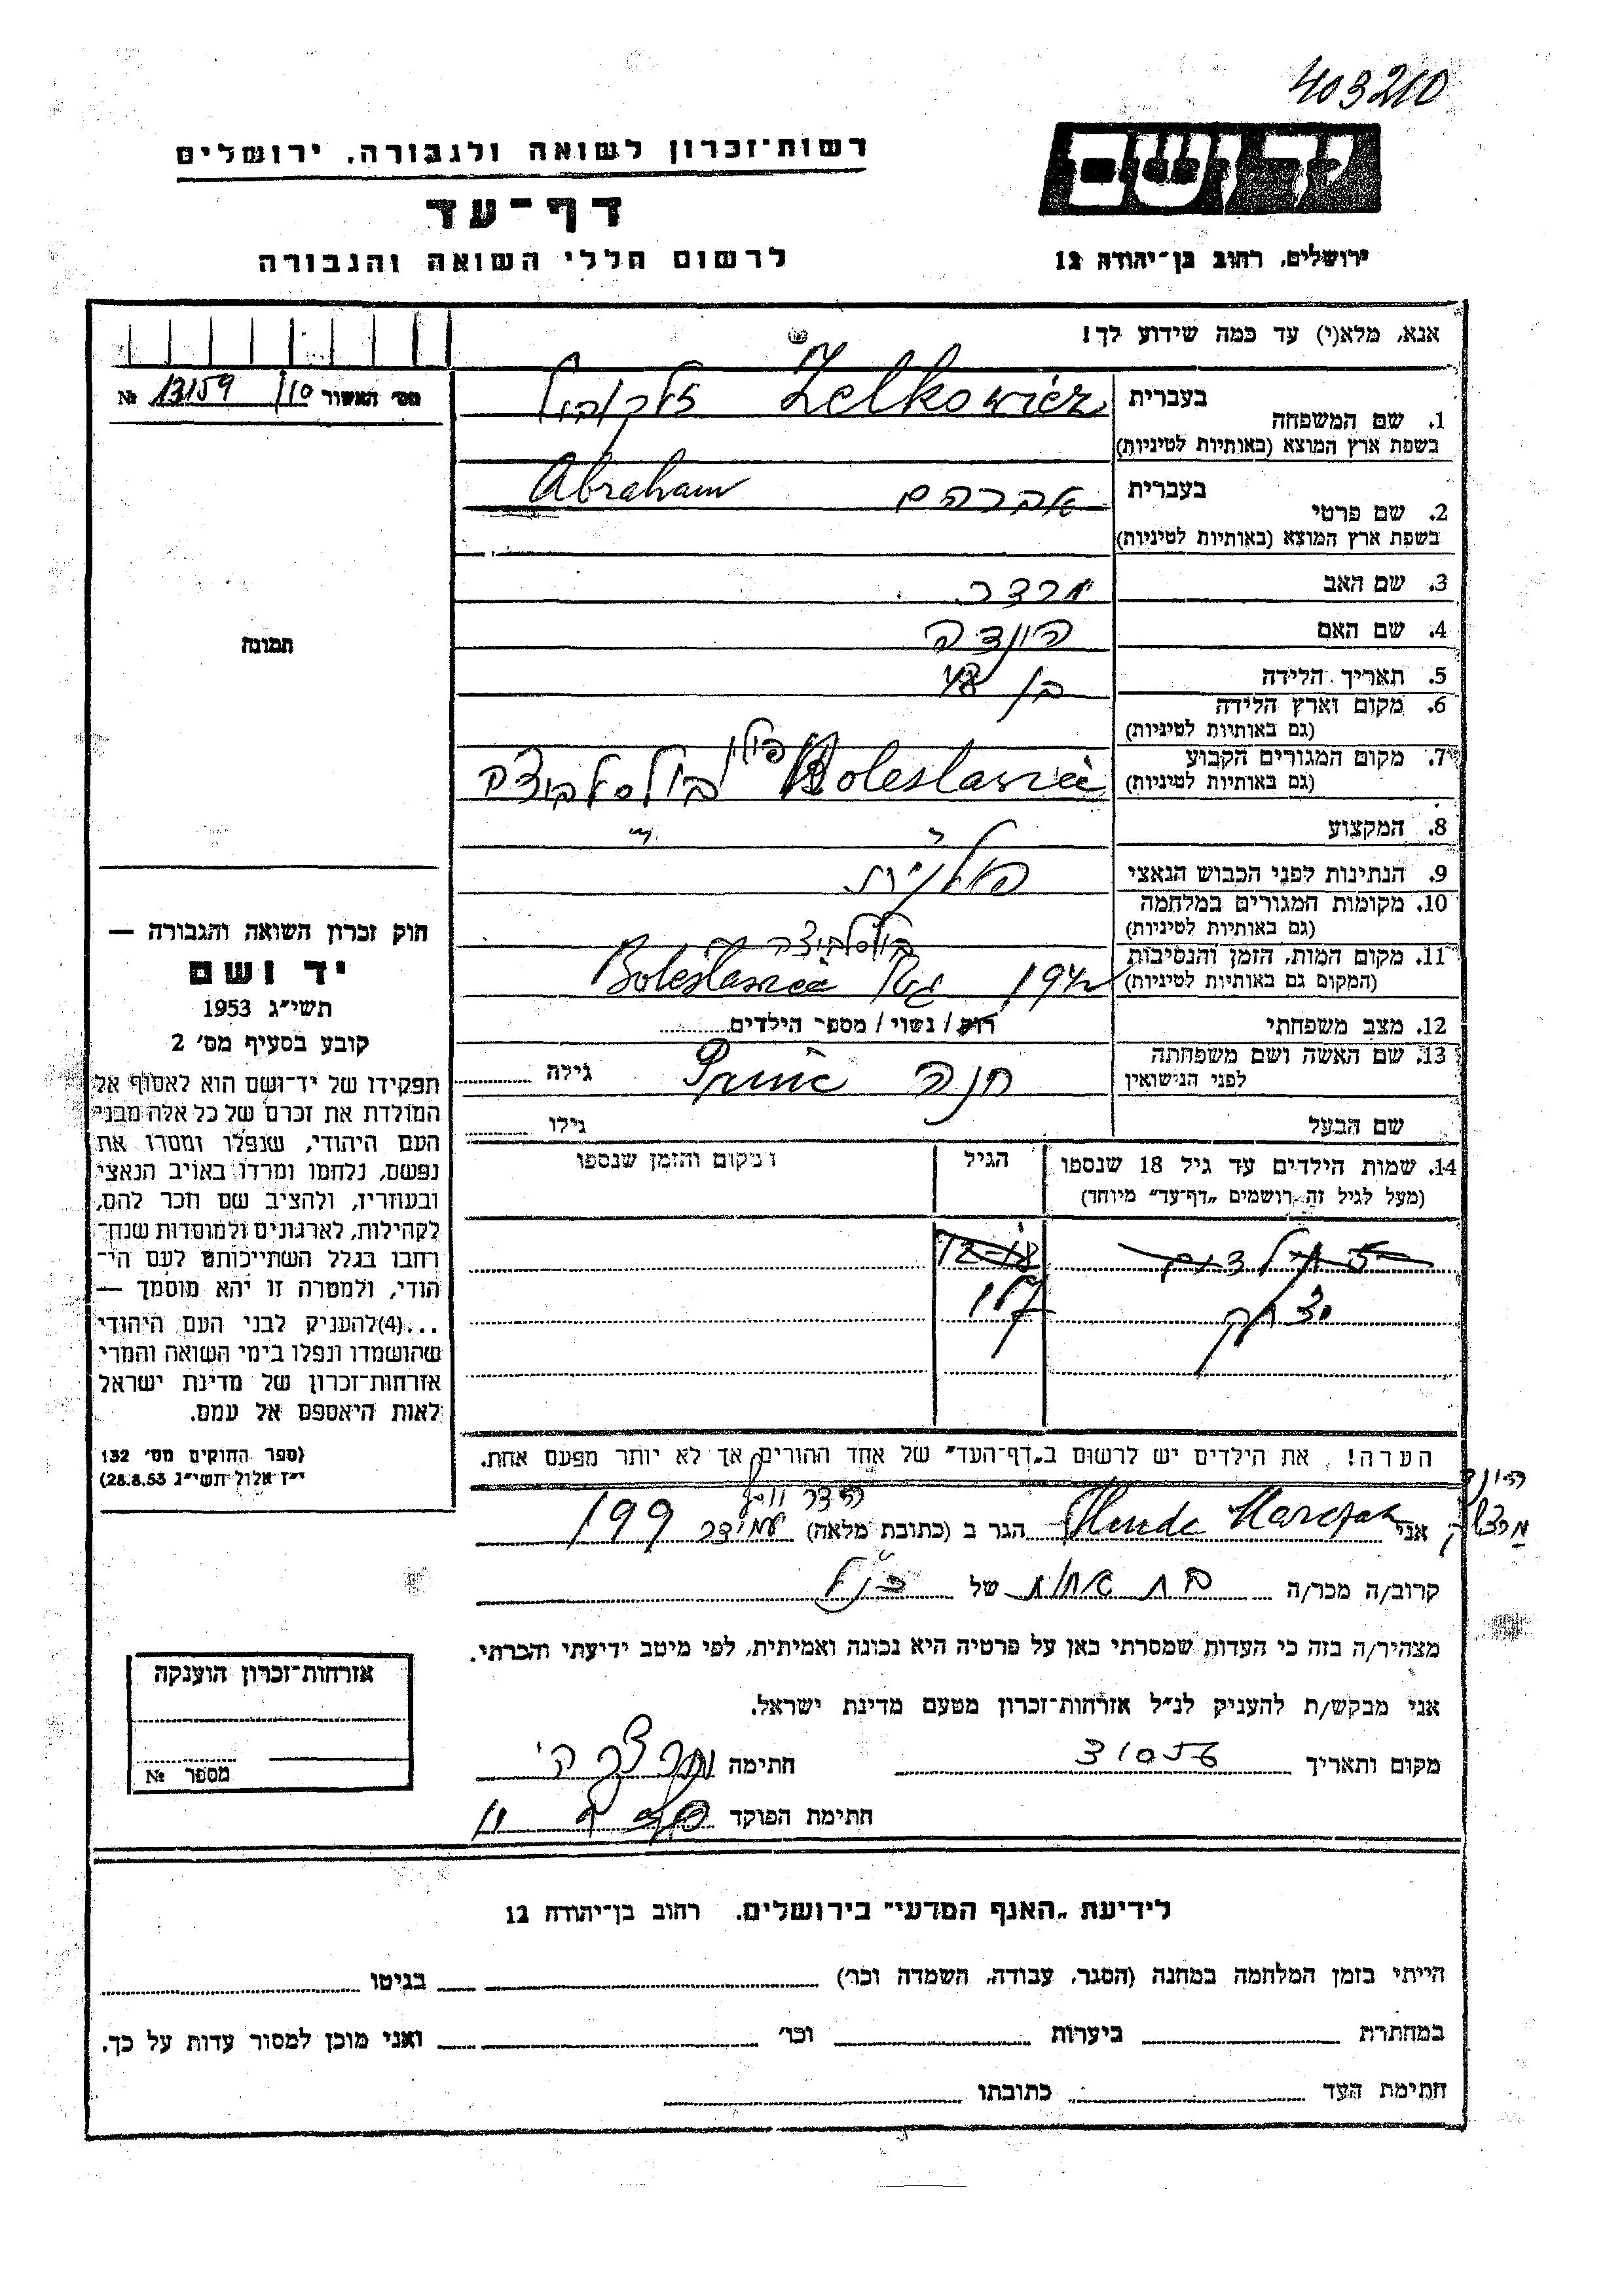 403210
רשות־זכרון לשואה ולגבורה, ירושלים
יד ושם
דף־עד
לרשום חללי השואה והגבורה
ירושלים, רחוב בן־יהודה 12
אנא, מלא(י) עד כמה שידוע לך!
מס' האשור 110 13159 №
תמונה
בעברית
1. שם המשפחה
בשפת ארץ המוצא (באותיות לטיניות)
Zelkowicz
בעברית
2. שם פרטי
בשפת ארץ המוצא (באותיות לטיניות)
אברהם Abraham
3. שם האב
4. שם האם
הינדה
5. תאריך הלידה
בן
6. מקום וארץ הלידה
(גם באותיות לטיניות)
פולין
7. מקום המגורים הקבוע
(גם באותיות לטיניות)
Boleslawiec
8. המקצוע
9. הנתינות לפני הכבוש הנאצי
פולנית
10. מקומות המגורים במלחמה
(גם באותיות לטיניות)
11. מקום המות, הזמן והנסיבות
(המקום גם באותיות לטיניות)
1942
12. מצב משפחתי רווק / נשוי / מספר הילדים
13. שם האשה ושם משפחתה
לפני הנישואין
חנה גילה
שם הבעל גילו
14. שמות הילדים עד גיל 18 שנספו
(מעל לגיל זה רושמים „דף־עד” מיוחד)
הגיל
מקום והזמן שנספו
יצחק
הערה! את הילדים יש לרשום ב„דף־העד” של אחד ההורים אך לא יותר מפעם אחת.
הינד
אני Hinde הגר ב (כתובת מלאה) עמידר 199
קרוב/ה מכר/ה בת אחות של הנ"ל
מצהיר/ה בזה כי העדות שמסרתי כאן על פרטיה היא נכונה ואמיתית, לפי מיטב ידיעתי והכרתי.
אני מבקש/ת להעניק לנ"ל אזרחות־זכרון מטעם מדינת ישראל.
מקום ותאריך חתימה
חתימת הפוקד
חוק זכרון השואה והגבורה —
יד ושם
תשי"ג 1953
קובע בסעיף מס' 2
תפקידו של יד־ושם הוא לאסוף אל
המולדת את זכרם של כל אלה מבני
העם היהודי, שנפלו ומסרו את
נפשם, נלחמו ומרדו באויב הנאצי
ובעוזריו, ולהציב שם וזכר להם,
לקהילות, לארגונים ולמוסדות שנח־
רבו בגלל השתייכותם לעם הי־
הודי, ולמטרה זו יהא מוסמך —
...(4)להעניק לבני העם היהודי
שהושמדו ונפלו בימי השואה והמרי
אזרחות־זכרון של מדינת ישראל
לאות היאספם אל עמם.
(ספר החוקים מס' 132
י"ז אלול תשי"ג 28.8.53)
אזרחות־זכרון הוענקה
מספר №
לידיעת „האגף המדעי” בירושלים, רחוב בן־יהודה 12
הייתי בזמן המלחמה במחנה (הסגר, עבודה, השמדה וכו') בגיטו
במחתרת ביערות וכו' ואני מוכן למסור עדות על כך.
חתימת העד כתובתו